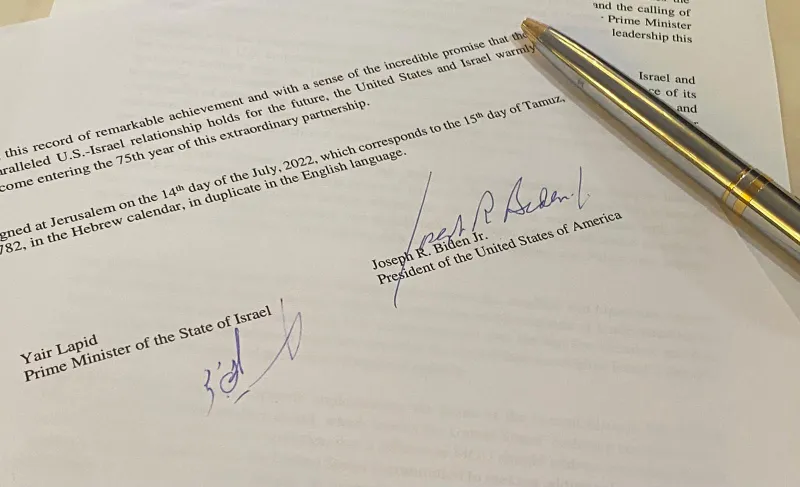 and the calling of
Prime Minister
leadership this
Israel and
ce of its
and
this record of remarkable achievement and with a sense of the incredible promise that the
ralleled U.S.-Israel relationship holds for the future, the United States and Israel warmly
come entering the 75th year of this extraordinary partnership.
gned at Jerusalem on the 14th day of the July, 2022, which corresponds to the 15th day of Tamuz,
782, in the Hebrew calendar, in duplicate in the English language.
Joseph R Biden Jr.
Joseph R. Biden Jr.
President of the United States of America
Yair Lapid
Prime Minister of the State of Israel